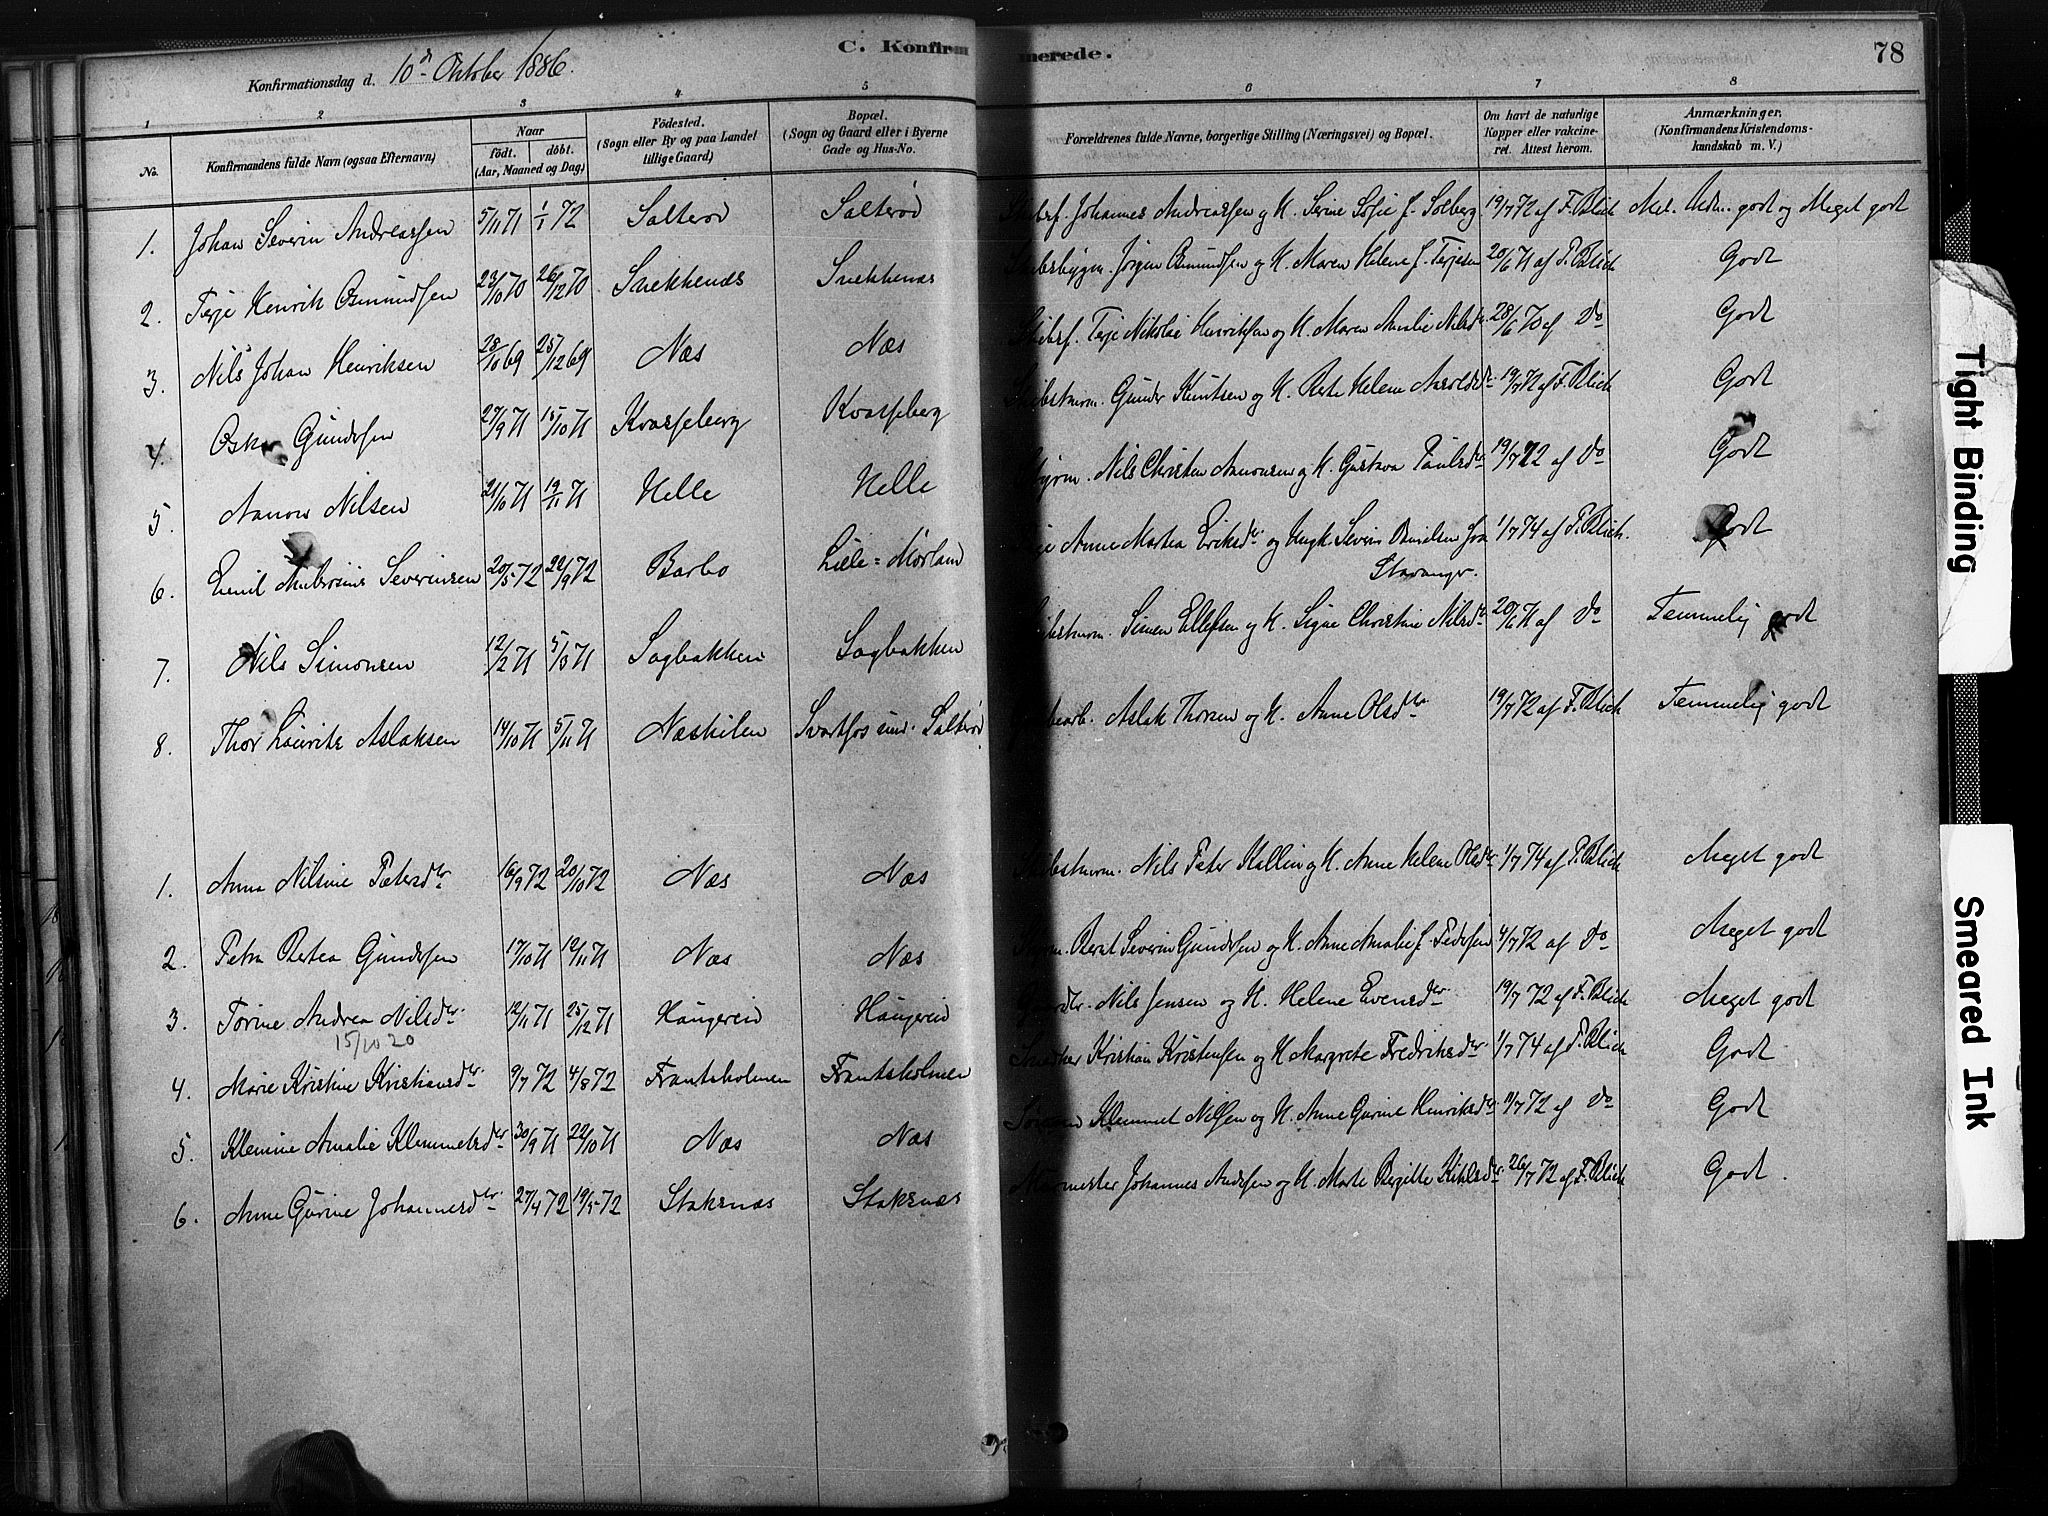 C. Konfirmerede. 78
Konfirmationsdag d. 10de Oktober 1886.
1 2 3 4 5 6 7 8
No. Konfirmandens fulde Navn (ogsaa Efternavn) Naar født. døbt. (Aar, Maaned og Dag) Fødested. (Sogn eller By og paa Landet tillige Gaard) Bopæl. (Sogn og Gaard eller i Byerne Gade og Hus-No. Forældrenes fulde Navne, borgerlige Stilling (Næringsvei) og Bopæl. Om havt de naturlige Kopper eller vakcineret. Attest herom. Anmærkninger. (Konfirmandens Kristendomskundskab m. V.)
1. Johan Severin Andreassen 5/11 71 1/1 72 Salterød Salterød Johannes Andreassen g K. Serine Sofie f. Solberg 19/7 72 af F. Blich Mel. Udm. godt og Meget godt
2. Terje Henrik Osmundsen 23/10 70 26/12 70 Snekkenæs Snekkenæs Skibsbygm. Jørgen Osmundsen og K. Maren Helene f. Terjesen 20/6 71 af F. Blich Godt
3. Nils Johan Henriksen 28/10 69 25/12 69 Næs Næs Skibsf. Terje Nikolai Henriksen og K. Maren Amalie Nilsdr 28/6 70 af Do Godt
4. Oskar Gundersen 27/9 71 15/10 71 Kvasseberg Kvasseberg Skibstmrm. Gunder Knutsen og K. Berte Helene Aasoldsdr 19/7 72 af F. Blich Godt
5. Aanon Nilsen 21/10 71 19/11 71 Helle Helle Styrm. Nils Christen Aanonsen og K. Gustava Paulsdr 19/7 72 af Do Godt
6. Emil Ambrosius Severinsen 20/5 72 22/9 72 Barbo Lille=Mørland Pige Anne Martea Eriksdr og Ungk. Severin Danielsen fra 1/7 74 af F. Blich. Godt
Stavanger.
7. Nils Simonsen 12/2 71 5/3 71 Sagbakken Sagbakken Skibstmrm. Simon Ellefsen og K. Signe Christine Nilsdr 20/6 71 af Do Temmelig godt
8. Thor Lauritz Aslaksen 14/10 71 5/11 71 Næskilen Svartfos und. Salterød Aslak Thorsen og K. Anne Olsdtr 19/7 72 af F. Blich Temmelig godt
1. Anna Nilsine Petersdtr 16/9 72 20/10 72 Næs Næs Skibstmrm. Nils Peter Kallin og K. Anne Helene Olsdtr 1/7 74 af F. Blich Meget godt
2. Petra Bertea Gundersen 17/10 71 12/11 71 Næs Næs Styrm. Berat Severin Gundersen og K. Anne Amalie f. Pedersen 4/7 72 af Do Meget godt
3. Torine Andrea Nilsdtr 12/11 71 25/12 71 Haugereid Haugereid Gaardbr. Nils Jensen og K. Helene Evensdtr 19/7 72 af F. Blich Meget godt
15/10 20
4. Marie Kristine Kristiansdtr 9/7 72 4/8 72 Frantsholmen Frantsholmen Snedker Kristian Kristensen og K Margrete Fredriksdtr 1/7 74 af F. Blich Godt
5. Klemine Amalie Klemmetsdtr 30/9 71 22/10 71 Næs Næs Sømand Klemmet Nilsen og K. Anne Gurine Henriksdtr 9/7 72 af Do Godt
6. Anne Gurine Johannesdtr 27/4 72 19/5 72 Staksnæs Staksnæs Murmester Johannes Andersen og K. Marte Bergitte Kitilsdtr 26/7 72 af F. Blich Godt.
Tight Binding
Smeared Ink